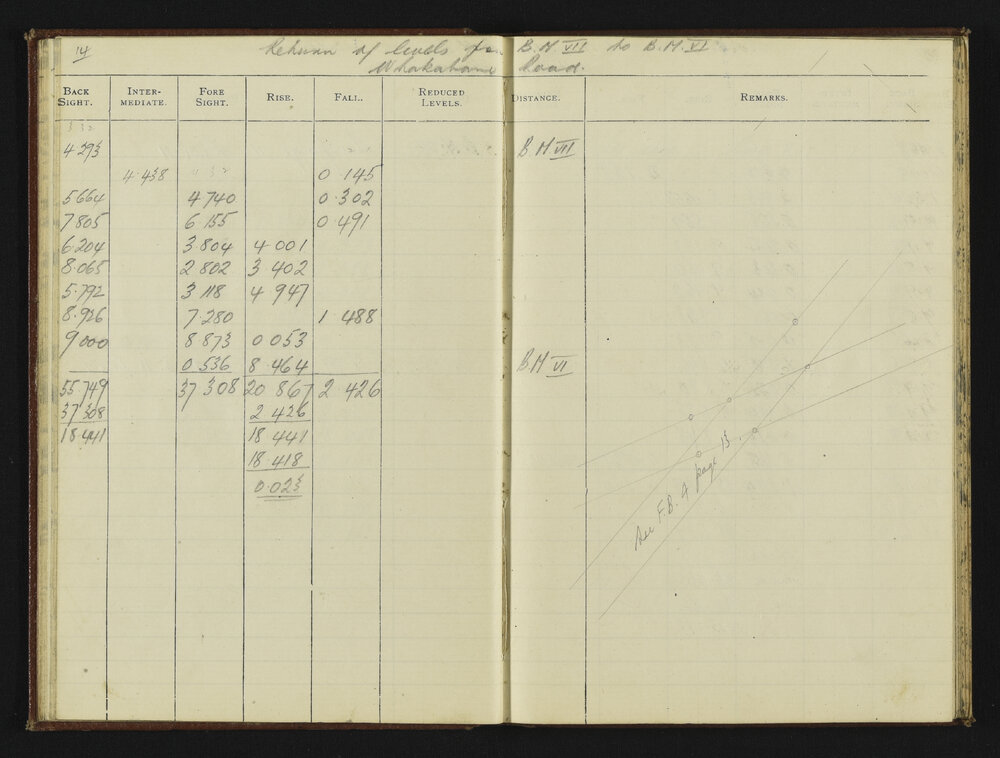 14
Return of levels from B.M VII to B.M.VI
Whakatane Road.
BACK SIGHT. INTER-MEDIATE. FORE SIGHT. RISE. FALL. REDUCED LEVELS. DISTANCE. REMARKS.
4.293 B.M VII
4.438 0 145
5.664 4 740 0.302
7.805 6.155 0.491
6.204 3.804 4.001
8.065 2 802 3 402
5.792 3 118 4 947
8.926 7.280 1 488
9 000 8 873 0 053
0.536 8 464 B.M VI
55 749 37 308 20 867 2 426
37 308 2 426
18 441 18 441
18 418
0.023
See F.B. 4 page 13.